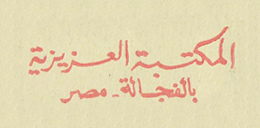 المكتبة العزيزية
بالفجالة - مصر